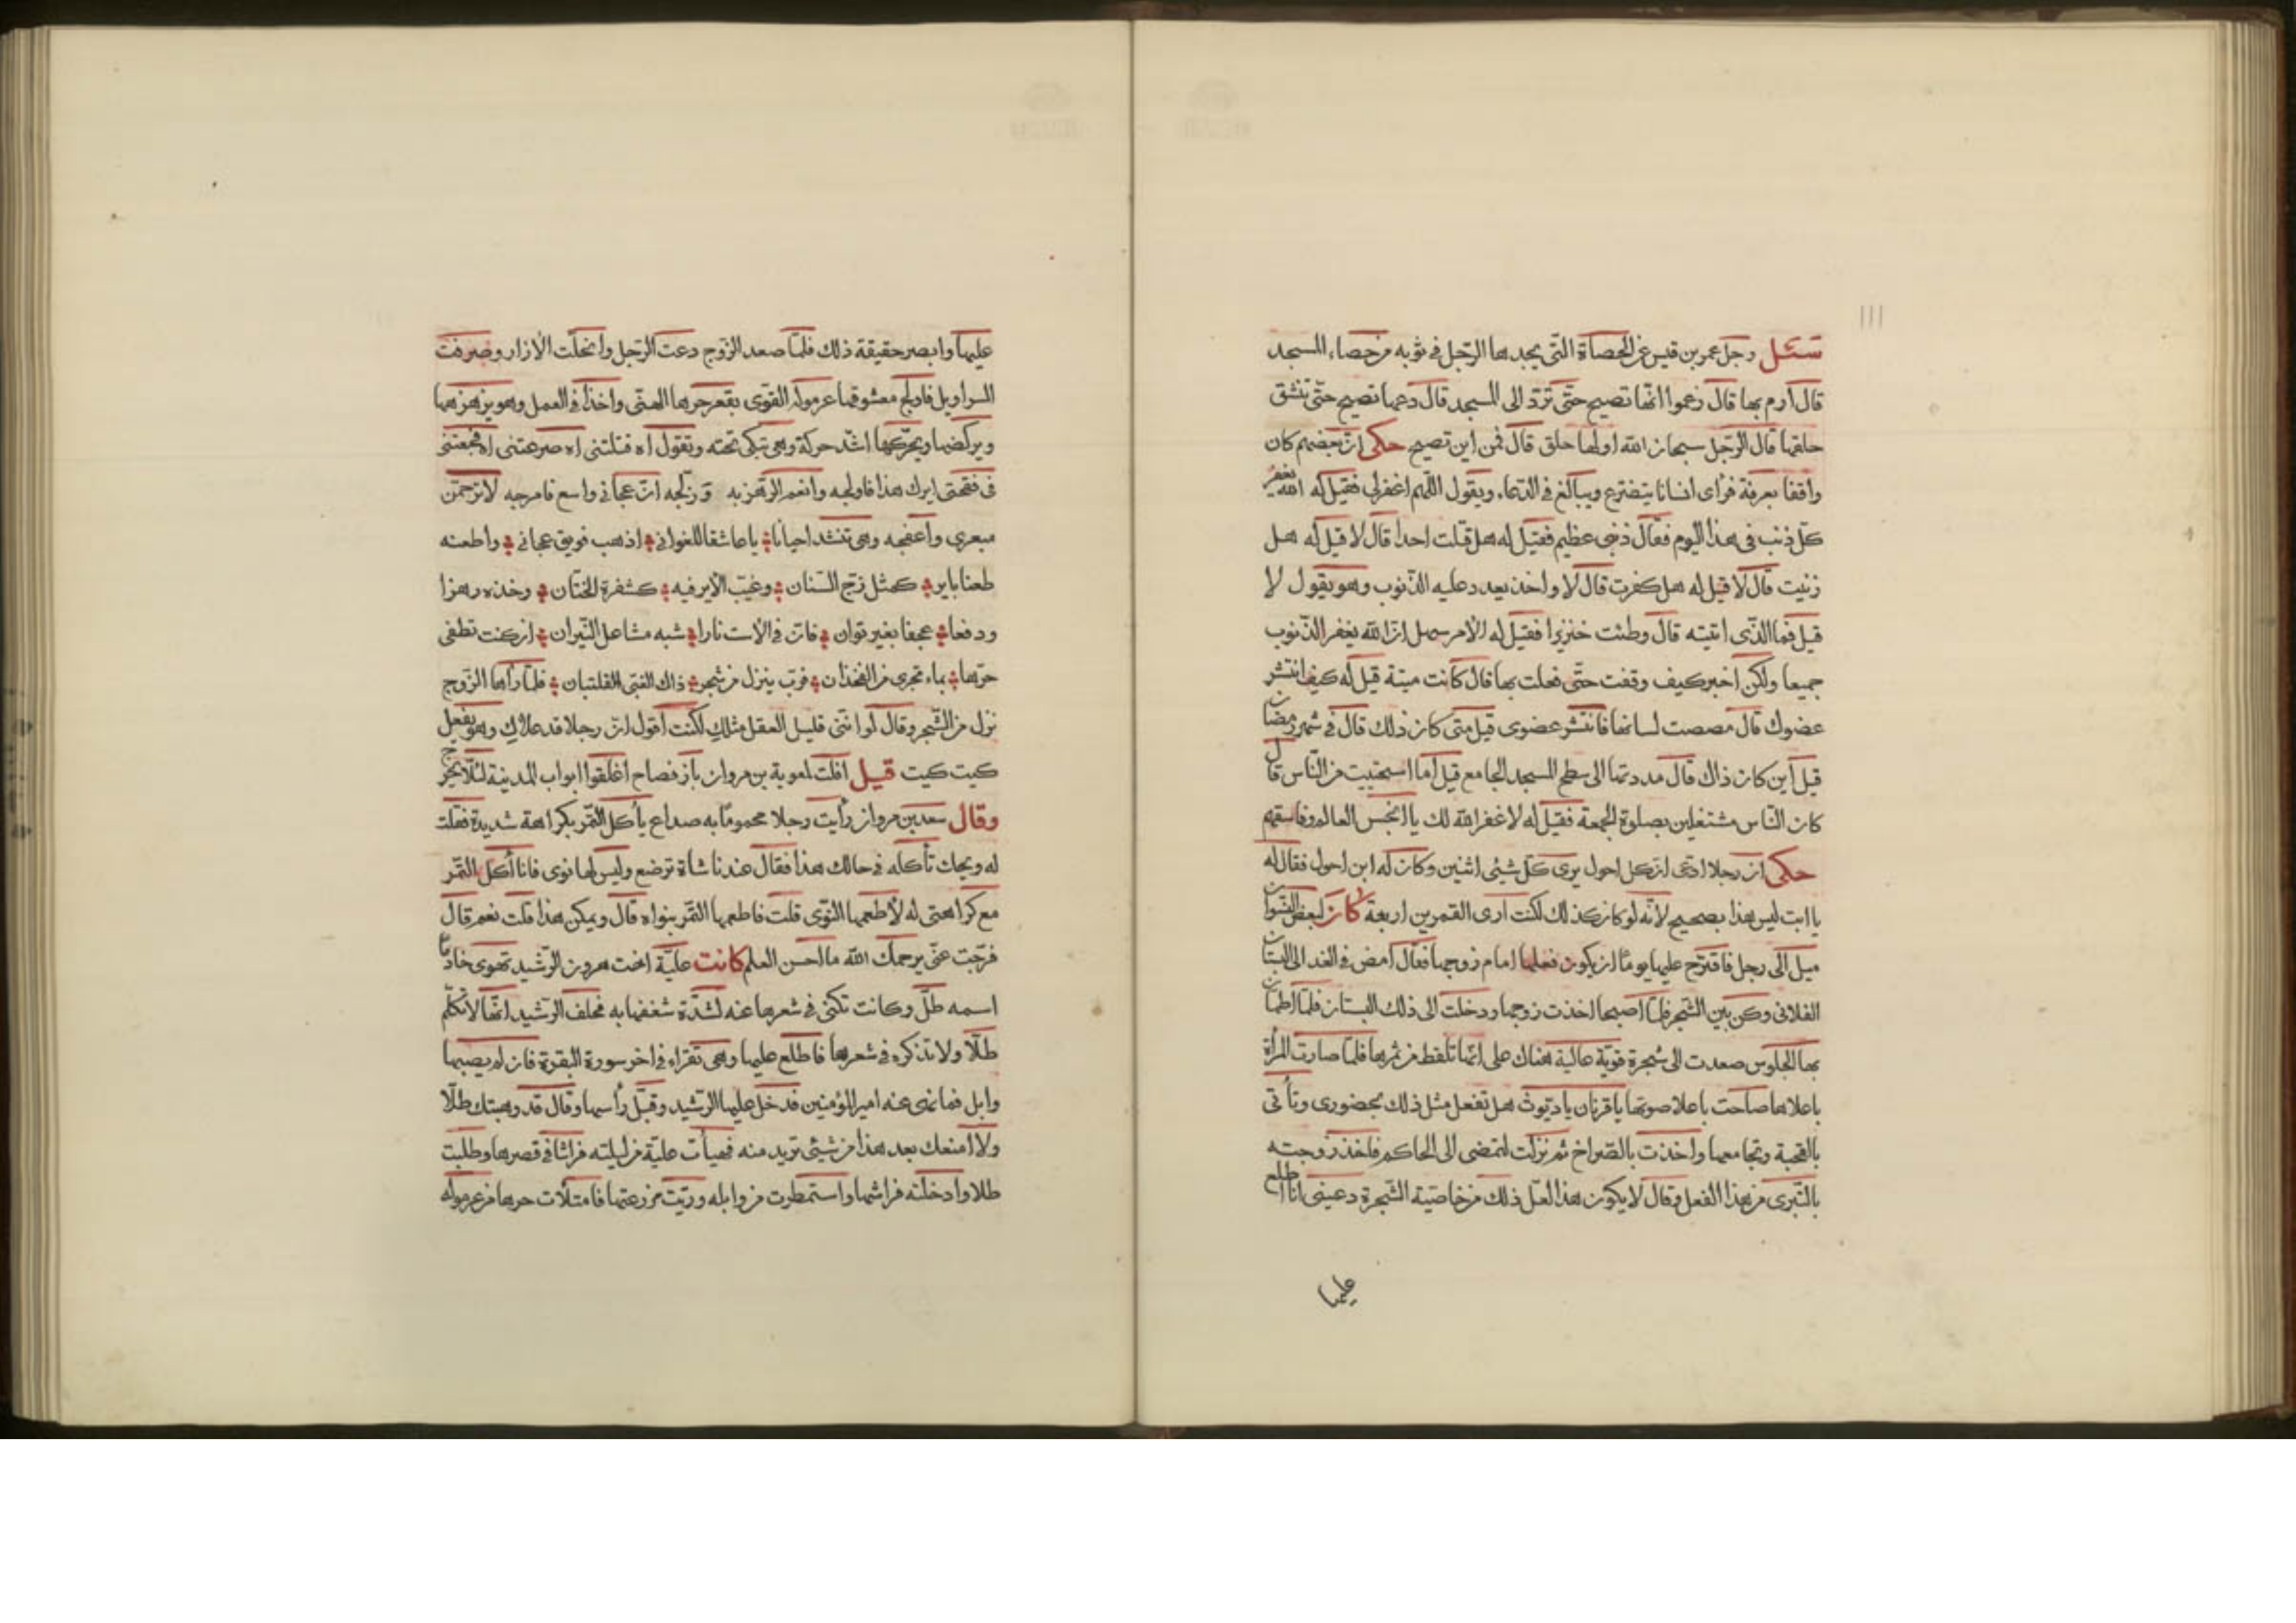 ١١١
سئل رجل عمر بن قيس عن الحصاة التى يجدها الرجل فى ثوبه من حصاء المسجد
قال ارم بها قال زعموا انها تصيح حتى ترد الى المسجد قال دعها تصيح حتى تنشق
حلقها قال الرجل سبحان الله اولها حلق قال فمن اين تصيح حكى ان بعضهم كان
واقفا بعرفة فراى انسانا يتضرع ويبالغ فى الدعاء ويقول اللهم اغفر لى فقيل له الله يغفر
كل ذنب فى هذا اليوم فقال ذنبى عظيم فقيل له هل قتلت احدا قال لا قيل له هل
زنيت قال لا قيل له هل كفرت قال لا واخذ يعدد عليه الذنوب وهو يقول لا
قيل فما الذى اتيته قال وطئت خنزيرا فقيل له الامر سهل ان الله يغفر الذنوب
جميعا ولكن اخبر كيف وقفت حتى فعلت بها قال كانت ميتة قيل له كيف انتشر
عضوك قال مصصت لسانها فانتشر عضوى قيل متى كان ذلك قال فى شهر رمضان
قيل اين كان ذاك قال مددتها الى سطح المسجد الجامع قيل اما استحييت من الناس قال
كان الناس مشتغلين بصلوة الجمعة فقيل له لا غفر الله لك يا انجس العالم وفاسقهم
حكى ان رجلا ادعى ان كل احول يرى كل شيئ اثنين وكان له ابن احول فقال له
يا ابت ليس هذا بصحيح لانه لو كان كذلك لكنت ارى القمرين اربعة كان لبعض النسوان
ميل الى رجل فاقترح عليها يوما ان يكون فعلها امام زوجها فقال امض فى الغد الى البستان
الفلانى وكن بين الشجر فلما اصبحا اخذت زوجها ودخلت الى ذلك البستان فلما اطمان
بها الجلوس صعدت الى شجرة قوية عالية هناك على انها تلقط من ثمرها فلما صارت المرأة
باعلاها صاحت باعلا صوتها يا قرنان يا ديوث هل تفعل مثل ذلك بحضورى وتأتى
بالقحبة وتجامعها واخذت بالصراخ ثم نزلت لتمضى الى الحاكم فاخذ زوجته
بالتبرى من هذا الفعل وقال لا يكون هذا العل ذلك من خاصية الشجرة دعينى انا اطلع
عليها
عليها وابصر حقيقة ذلك فلما صعد الزوج دعت الرجل وانحلت الازار وصرفت
السراويل فاولج معشوقها غرموله القوى بقعر حرها العتى واخذا فى العمل وهو يزهزهها
ويركضها ويحركها اشد حركة وهى تبكى تحته وتقول اه قتلتنى اه صرعتنى اه فجعتنى
فى فقحتى ايرك هذا فاولجه وانعم الرهز به وزلجه ان عجانى واسع فامرجه لا ترحمن
مبعرى واعفجه وهى تنشد احيانا يا عاشقا للغوانى اذهب فويق عجانى واطعنه
طعنا باير كمثل زج السنان وغيب الاير فيه كشفرة الختان وخذه رهزا
ودفعا عجفا بغير توان فان فى الاست نارا شبه مشاعل النيران ان كنت تطفى
حرها بماء تجرى من الفخذان فرب ينزل من شجر ذاك الفتى القلتبان فلما رأها الزوج
نزل من الشجر وقال لو اننى قليل العقل مثلك لكنت اقول ان رجلا قد علاك وهو يفعل
كيت كيت قيل افلت لمعوية بن مروان باز فصاح اغلقوا ابواب المدينة لئلا يخرج
وقال سعد بن مروان رأيت رجلا محموما به صداع يأكل التمر بكراهة شديدة فقلت
له ويحك تأكله فى حالك هذا فقال عندنا شاة ترضع وليس لها نوى فانا أكل التمر
مع كراهتى له لأطعمها النوى قلت فاطعمها التمر بنواه قال ويمكن هذا قلت نعم قال
فرجت عنى يرحمك الله ما احسن العلم كانت علية اخت هرون الرشيد تهوى خادما
اسمه طل وكانت تكنى فى شعرها عنه لشدة شغفها به فحلف الرشيد انها لا تكلم
طلا ولا تذكره فى شعرها فاطلع عليها وهى تقراء فى اخر سورة البقرة فان لم يصبها
وابل فما نهى عنه امير المؤمنين فدخل عليها الرشيد وقبل رأسها وقال قد وهبتك طلا
ولا امنعك بعد هذا من شيئى تريد منه فهيأت علية من ليلته فراشا فى قصرها وطلبت
طلا وادخلته فراشها واستمطرت من وابله وريت مزرعتها فامتلأت حرها من غرموله